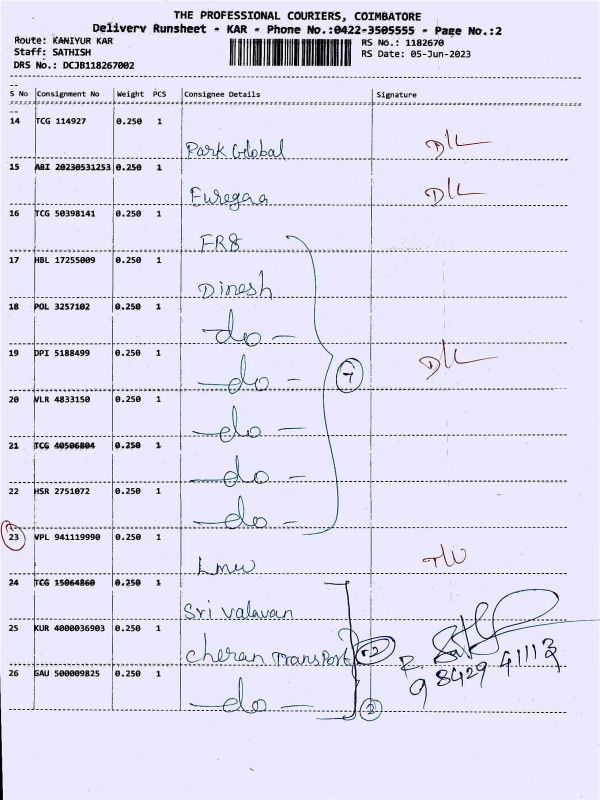 THE PROFESSIONAL COURIERS, COIMBATORE
Delivery Runsheet - KAR - Phone No.:0422-3505555 - Page No.:2
Route: KANIYUR KAR
RS No.: 1182670
Staff: SATHISH
RS Date: 05-Jun-2023
DRS No.: DCJB118267002
S No Consignment No Weight PCS Consignee Details Signature
14 TCG 114927 0.250 1
Park Global D/L
15 ABI 20230531253 0.250 1
Euregaa D/L
16 TCG 50398141 0.250 1
FR8
17 HBL 17255009 0.250 1
Dinesh
18 POL 3257102 0.250 1
- do -
19 DPI 5188499 0.250 1
- do - 7 D/L
20 VLR 4833150 0.250 1
- do -
21 TCG 40506804 0.250 1
- do -
22 HSR 2751072 0.250 1
- do -
23 VPL 941119990 0.250 1
Lmw
24 TCG 15064860 0.250 1
Sri valavan
25 KUR 4000036903 0.250 1
Cheran Transport
98429 41113
26 GAU 500009825 0.250 1
- do - 2